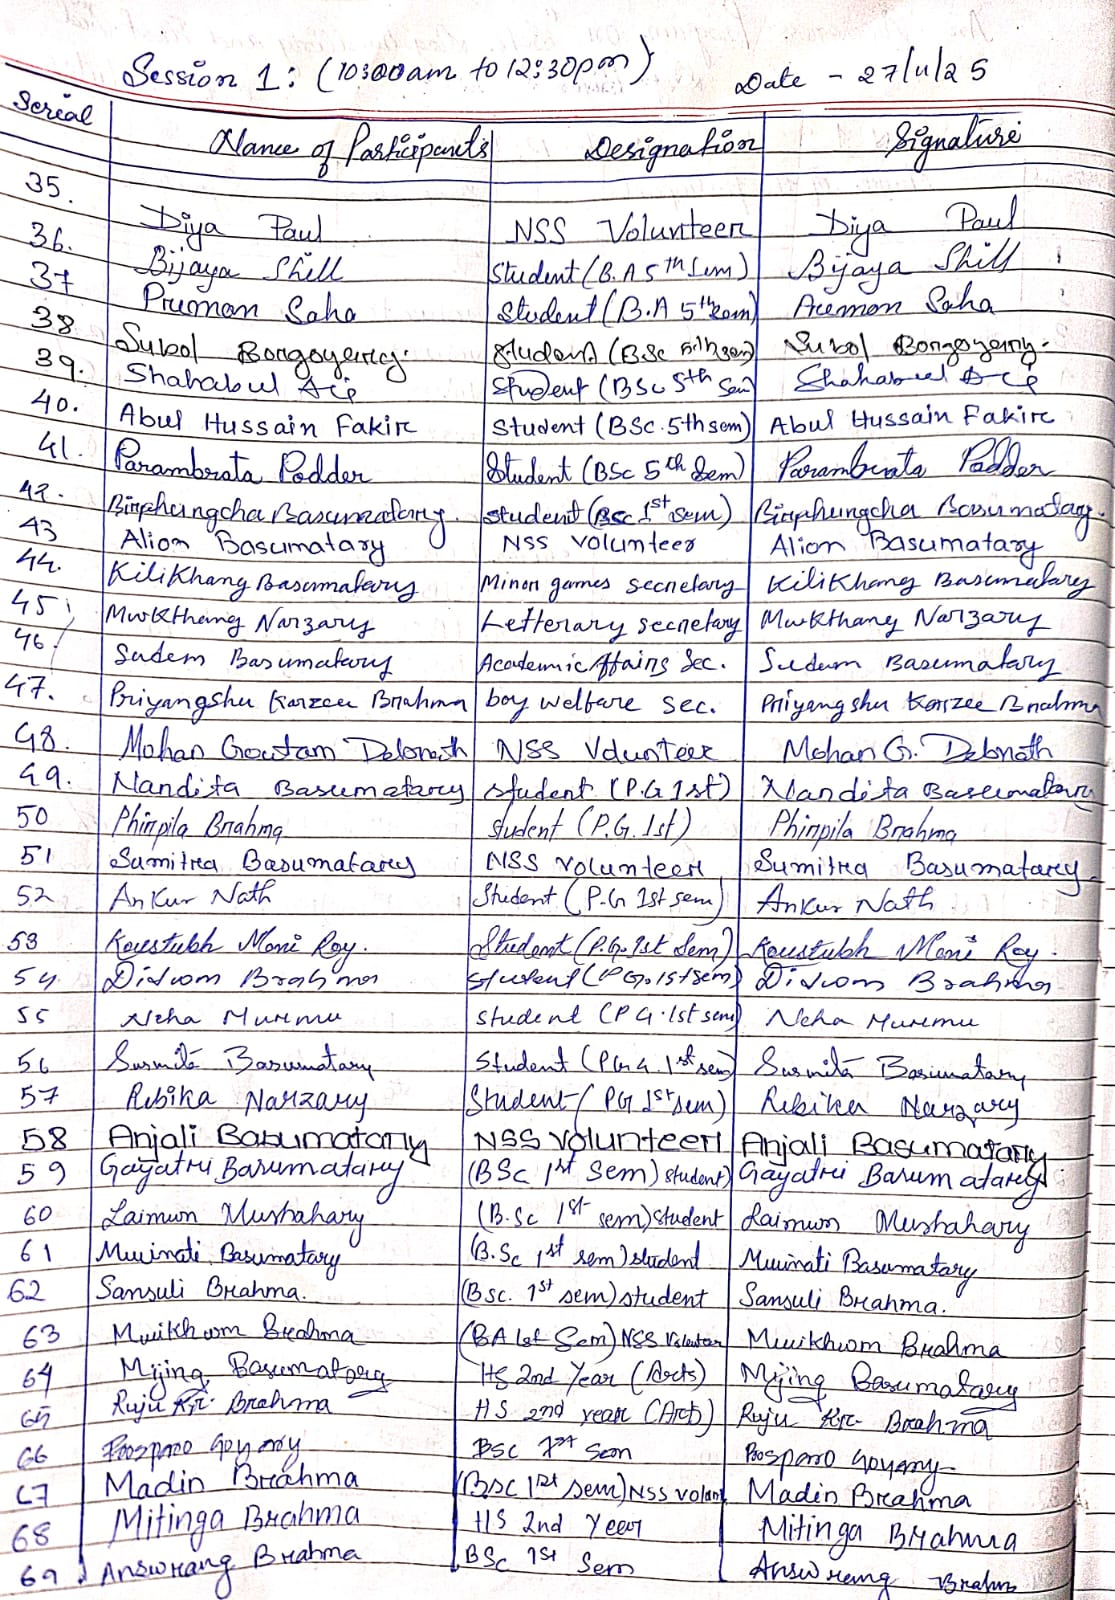 Session 1: (10:00am to 12:30pm) Date - 27/11/25
Serial Name of Participants Designation Signature
35. Diya Paul NSS Volunteer Diya Paul
36. Bijaya Shill Student (B.A 5th Sem) Bijaya Shill
37 Saha Student (B.A 5th sem) Saha
38 Subol Borgoyary. Student (BSc 5th sem) Subol Borgoyary.
39. Shahabul Student (BSc 5th Sem) Shahabul
40. Abul Hussain Fakir Student (BSc. 5th sem) Abul Hussain Fakir
41. Parambrata Podder Student (BSc 5th Sem) Parambrata Podder
42. Birphungcha Basumatary. Student (BSc 1st sem) Birphungcha Basumatary.
43 Alion Basumatary NSS volunteer Alion Basumatary
44. Kilikhang Basumatary Minor games secretary Kilikhang Basumatary
45 Mwkthang Narzary Letterary secretary Mwkthang Narzary
46 Sudem Basumatary Academic Affairs Sec. Sudem Basumatary
47. Priyangshu Karzee Brahma boy welfare sec. Priyangshu Karzee Brahma
48. Mohan Goutam Debnath NSS Volunteer Mohan G. Debnath
49. Nandita Basumatary student (P.G 1st) Nandita Basumatary
50 Phirpila Brahma student (P.G. 1st) Phirpila Brahma
51 Sumitra Basumatary NSS volunteer Sumitra Basumatary
52 Ankur Nath Student (P.G 1st sem) Ankur Nath
53 Koustubh Moni Roy. Student (P.G. 1st Sem) Koustubh Moni Roy.
54. Didwom Brahma student (PG. 1st sem) Didwom Brahma
55 Neha Murmu student (PG. 1st sem) Neha Murmu
56 Susmita Basumatary Student (PG 1st sem) Susmita Basumatary
57 Rebika Narzary Student (PG 1st sem) Rebika Narzary
58 Anjali Basumatary NSS volunteer Anjali Basumatary
59 Gayatri Basumatary (BSc 1st Sem) student) Gayatri Basumatary
60 Laimwn Mushahary (B.Sc 1st sem) student Laimwn Mushahary
61 Mwinati Basumatary (B.Sc 1st sem) student Mwinati Basumatary
62 Sansuli Brahma. (BSc. 1st sem) student Sansuli Brahma.
63 Mwikhwm Brahma (BA 1st Sem) NSS Volunteer Mwikhwom Brahma
64 Mijing Basumatary HS 2nd Year (Arts) Mijing Basumatary
65 Ruju Kr. Brahma HS 2nd year (Arts) Ruju Kr. Brahma
66 Goyary BSc 1st Sem Goyary
67 Madin Brahma (BSc 1st sem) NSS volunt Madin Brahma
68 Mitinga Brahma HS 2nd Year Mitinga Brahma
69 Answrang Brahma BSc 1st Sem Answrang Brahm